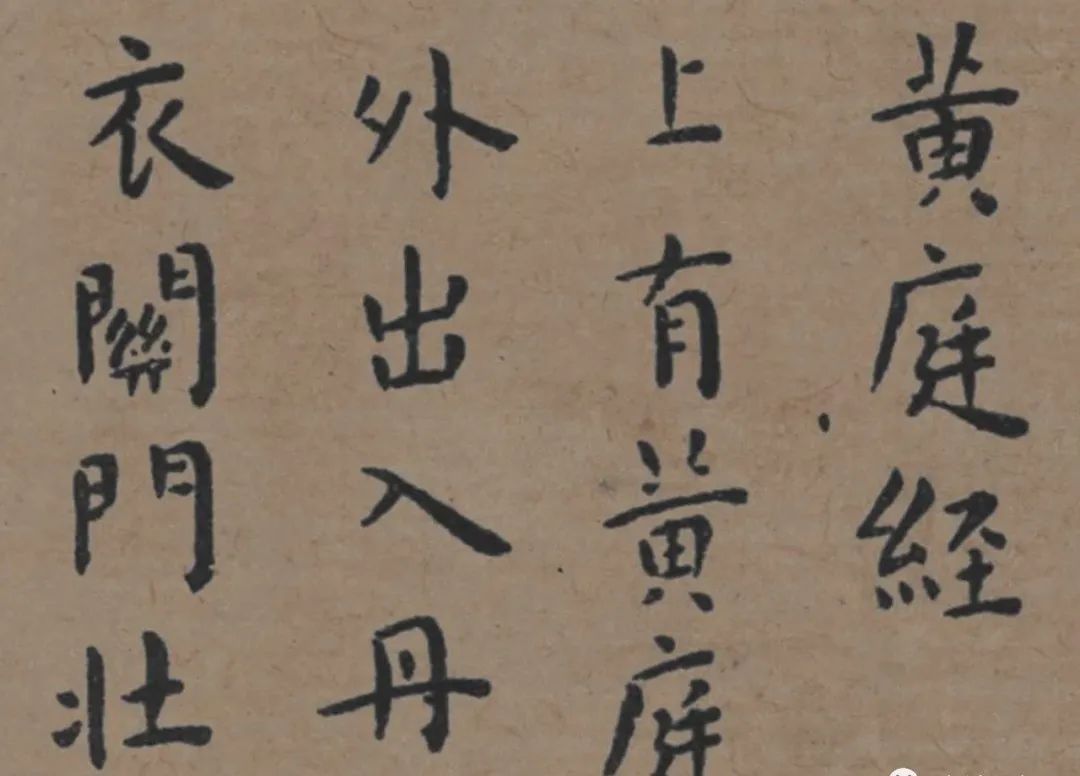 黄庭經
上有黄庭
外出入丹
衣關門壯